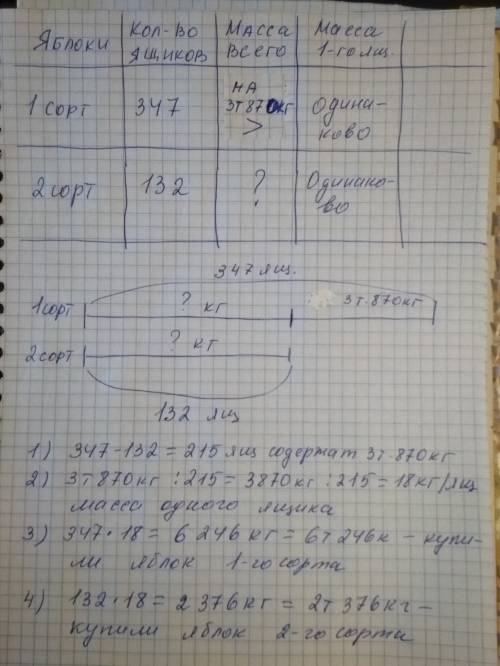 Яблоки Кол-во ящиков Масса всего Масса 1-го ящ.
1 сорт 347 на 3т 870кг > одинаково
2 сорт 132 ? Одинаково
347 ящ.
1 сорт ? кг 3т.870кг
2 сорт ? кг
132 ящ
1) 347-132 = 215 ящ содержат 3т.870кг
2) 3т870кг : 215 = 3870кг : 215 = 18кг/ящ
масса одного ящика
3) 347·18 = 6 246 кг = 6т 246к - купи-
ли яблок 1-го сорта
4) 132·18 = 2 376кг = 2т 376кг -
купили яблок 2-го сорта